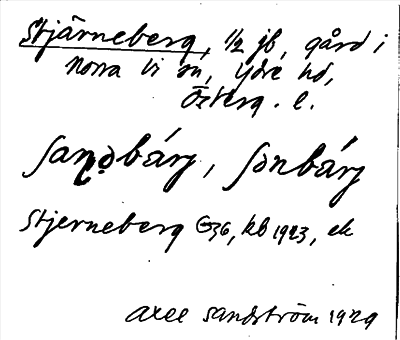 Stjärneberg, 1/2 jb, gård i
Norra Vi sn, Ydre hd,
Österg. l.
ʃaṇəbárj, ʃənbárj
Stjerneberg G36, kb 1923, ek
Axel Sandström 1929